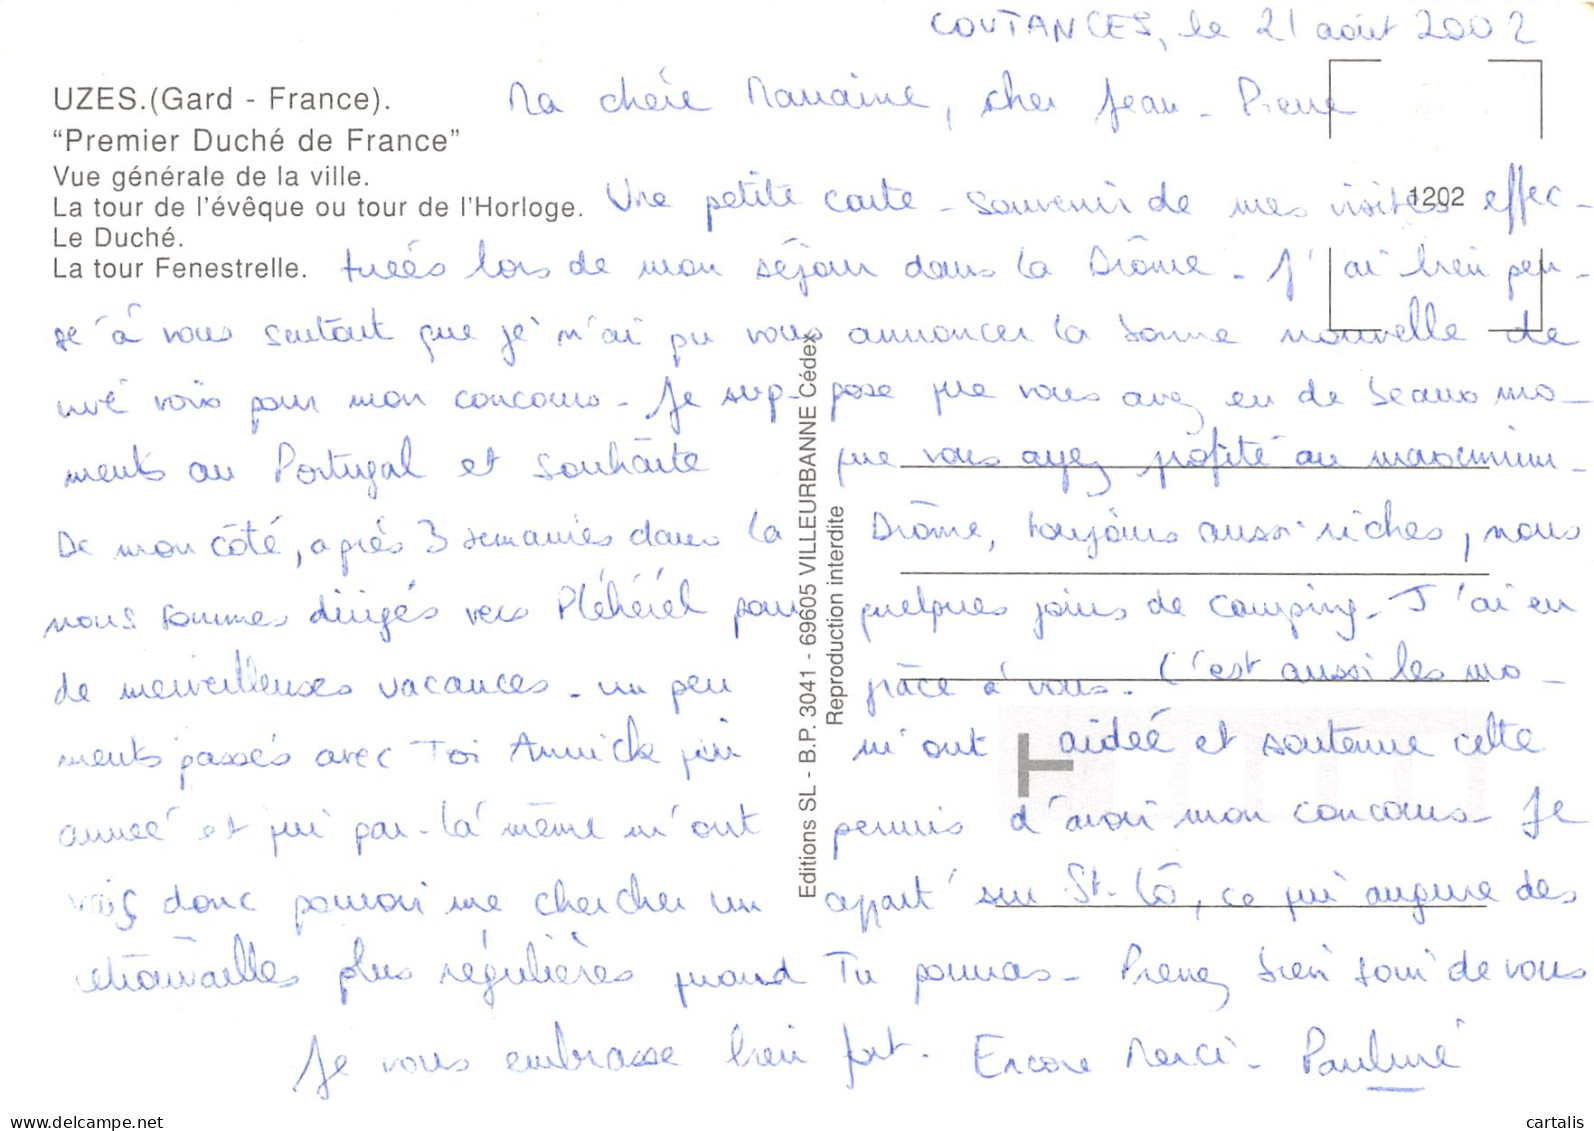 COUTANCES, le 21 août 2002
UZES.(Gard - France).
Ma chère Marraine, cher Jean-Pierre
"Premier Duché de France"
Vue générale de la ville.
La tour de l'évêque ou tour de l'Horloge.
Une petite carte-souvenir de mes visites effec-
1202
Le Duché.
La tour Fenestrelle.
tuées lors de mon séjour dans la Drôme. J'ai bien pen-
sé à vous surtout que je n'ai pu vous annoncer la bonne nouvelle de
vive voix pour mon concours. Je sup-pose que vous avez eu de beaux mo-
ments au Portugal et souhaite que vous ayez profité au maximum.
De mon côté, après 3 semaines dans la Drôme, toujours aussi riches, nous
nous sommes dirigés vers Pléhérel pour quelques jours de camping. J'ai eu
de merveilleuses vacances - un peu grâce à vous. C'est aussi les mo-
ments passés avec Toi Annick qui m'ont aidée et soutenue cette
année et qui par-là même m'ont permis d'avoir mon concours. Je
vais donc pouvoir me chercher un appart' sur St-Lô, ce qui augure des
retrouvailles plus régulières quand Tu pourras. Prenez bien soin de vous
Je vous embrasse bien fort. Encore Merci. Pauline
Editions SL - B.P. 3041 - 69605 VILLEURBANNE Cédex
Reproduction interdite
www.delcampe.net
cartalis